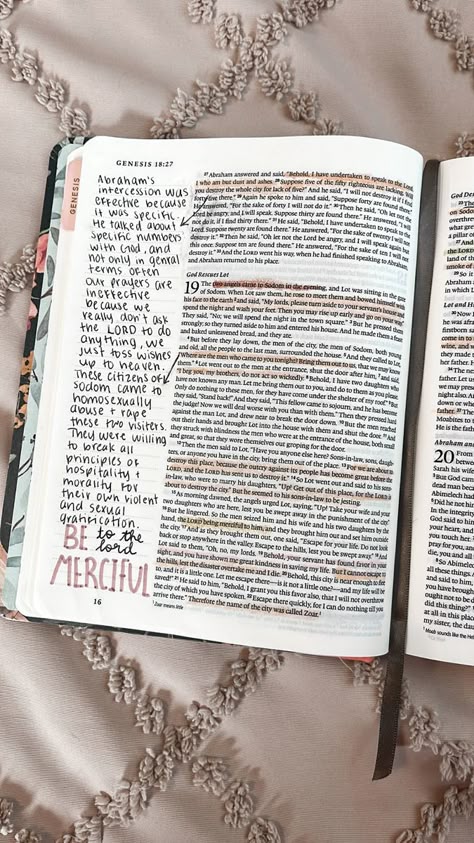 GENESIS 18:27
GENESIS
Abraham's
intercession was
effective because
it was specific.
He talked about
specific numbers
with God, and
not only in general
terms often
our prayers are
ineffective
because we
really don't ask
the LORD to do
anything, we
just toss wishes
up to heaven.
These citizens of
Sodom came to
homosexually
abuse + rape
these two visitors.
They were willing
to break all
principles of
hospitality +
morality for
their own violent
and sexual
gratification.
BE to the lord
MERCIFUL
27 Abraham answered and said, "Behold, I have undertaken to speak to the Lord,
I who am but dust and ashes. 28 Suppose five of the fifty righteous are lacking. Will
you destroy the whole city for lack of five?" And he said, "I will not destroy it if I find
forty-five there." 29 Again he spoke to him and said, "Suppose forty are found there."
He answered, "For the sake of forty I will not do it." 30 Then he said, "Oh let not the
Lord be angry, and I will speak. Suppose thirty are found there." He answered, "I will
not do it, if I find thirty there." 31 He said, "Behold, I have undertaken to speak to the
Lord. Suppose twenty are found there." He answered, "For the sake of twenty I will
not destroy it." 32 Then he said, "Oh let not the Lord be angry, and I will speak again but
this once. Suppose ten are found there." He answered, "For the sake of ten I will not
destroy it." 33 And the LORD went his way, when he had finished speaking to Abraham,
and Abraham returned to his place.
God Rescues Lot
19 The two angels came to Sodom in the evening, and Lot was sitting in the gate
of Sodom. When Lot saw them, he rose to meet them and bowed himself with
his face to the earth 2 and said, "My lords, please turn aside to your servant's house and
spend the night and wash your feet. Then you may rise up early and go on your way."
They said, "No; we will spend the night in the town square." 3 But he pressed them
strongly; so they turned aside to him and entered his house. And he made them a feast
and baked unleavened bread, and they ate.
4 But before they lay down, the men of the city, the men of Sodom, both young
and old, all the people to the last man, surrounded the house. 5 And they called to Lot,
"Where are the men who came to you tonight? Bring them out to us, that we may know
them." 6 Lot went out to the men at the entrance, shut the door after him, 7 and said,
"I beg you, my brothers, do not act so wickedly. 8 Behold, I have two daughters who
have not known any man. Let me bring them out to you, and do to them as you please.
Only do nothing to these men, for they have come under the shelter of my roof." 9 But
they said, "Stand back!" And they said, "This fellow came to sojourn, and he has become
the judge! Now we will deal worse with you than with them." Then they pressed hard
against the man Lot, and drew near to break the door down. 10 But the men reached
out their hands and brought Lot into the house with them and shut the door. 11 And
they struck with blindness the men who were at the entrance of the house, both small
and great, so that they wore themselves out groping for the door.
12 Then the men said to Lot, "Have you anyone else here? Sons-in-law, sons, daugh-
ters, or anyone you have in the city, bring them out of the place. 13 For we are about to
destroy this place, because the outcry against its people has become great before the
LORD, and the LORD has sent us to destroy it." 14 So Lot went out and said to his sons-
in-law, who were to marry his daughters, "Up! Get out of this place, for the LORD is
about to destroy the city." But he seemed to his sons-in-law to be jesting.
15 As morning dawned, the angels urged Lot, saying, "Up! Take your wife and your
two daughters who are here, lest you be swept away in the punishment of the city."
16 But he lingered. So the men seized him and his wife and his two daughters by the
hand, the LORD being merciful to him, and they brought him out and set him outside
the city. 17 And as they brought them out, one said, "Escape for your life. Do not look
back or stop anywhere in the valley. Escape to the hills, lest you be swept away." 18 And
Lot said to them, "Oh, no, my lords. 19 Behold, your servant has found favor in your
sight, and you have shown me great kindness in saving my life. But I cannot escape to
the hills, lest the disaster overtake me and I die. 20 Behold, this city is near enough to flee
to, and it is a little one. Let me escape there—is it not a little one?—and my life will be
saved!" 21 He said to him, "Behold, I grant you this favor also, that I will not overthrow
the city of which you have spoken. 22 Escape there quickly, for I can do nothing till you
arrive there." Therefore the name of the city was called Zoar.
Zoar means little
16
God De
20